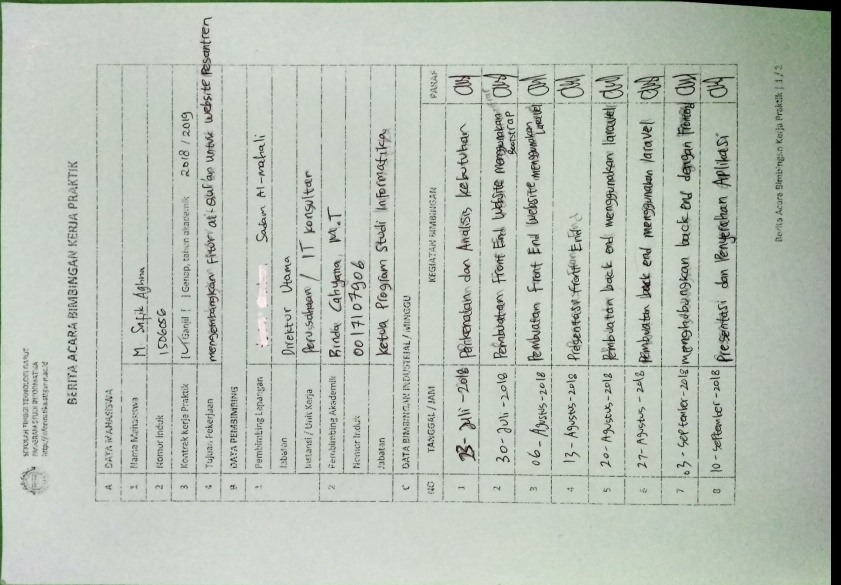 SEKOLAH TINGGI TEKNOLOGI GARUT
PROGRAM STUDI INFORMATIKA
BERITA ACARA BIMBINGAN KERJA PRAKTIK
A DATA MAHASISWA
1 Nama Mahasiswa M. Safik Aghna
2 Nomor Induk 1506056
3 Kontrak Kerja Praktik [✓] Ganjil [ ] Genap, tahun akademik 2018 / 2019
4 Tujuan Pekerjaan mengembangkan Fitur al-Qur'an untuk website Pesantren
B DATA PEMBIMBING
1 Pembimbing Lapangan Sadam Al-mahali
Jabatan Direktur Utama
Instansi / Unit Kerja Perusahaan / IT konsultan
2 Pembimbing Akademik Rinda Cahyana, M.T
Nomor Induk 0017107906
Jabatan Ketua Program Studi Informatika
C DATA BIMBINGAN INDUSTRIAL / MINGGU
NO TANGGAL / JAM KEGIATAN BIMBINGAN PARAF
1 23-Juli-2018 Perkenalan dan Analisis kebutuhan
2 30-Juli-2018 Pembuatan Front End Website Menggunakan Bootstrap
3 06-Agustus-2018 Pembuatan Front End Website menggunakan Laravel
4 13-Agustus-2018 Presentasi Front End
5 20-Agustus-2018 Pembuatan back end menggunakan laravel
6 27-Agustus-2018 Pembuatan back end menggunakan laravel
7 03-September-2018 menghubungkan back end dengan Frontend
8 10-September-2018 Presentasi dan Penyerahan Aplikasi
Berita Acara Bimbingan Kerja Praktik | 1 / 2